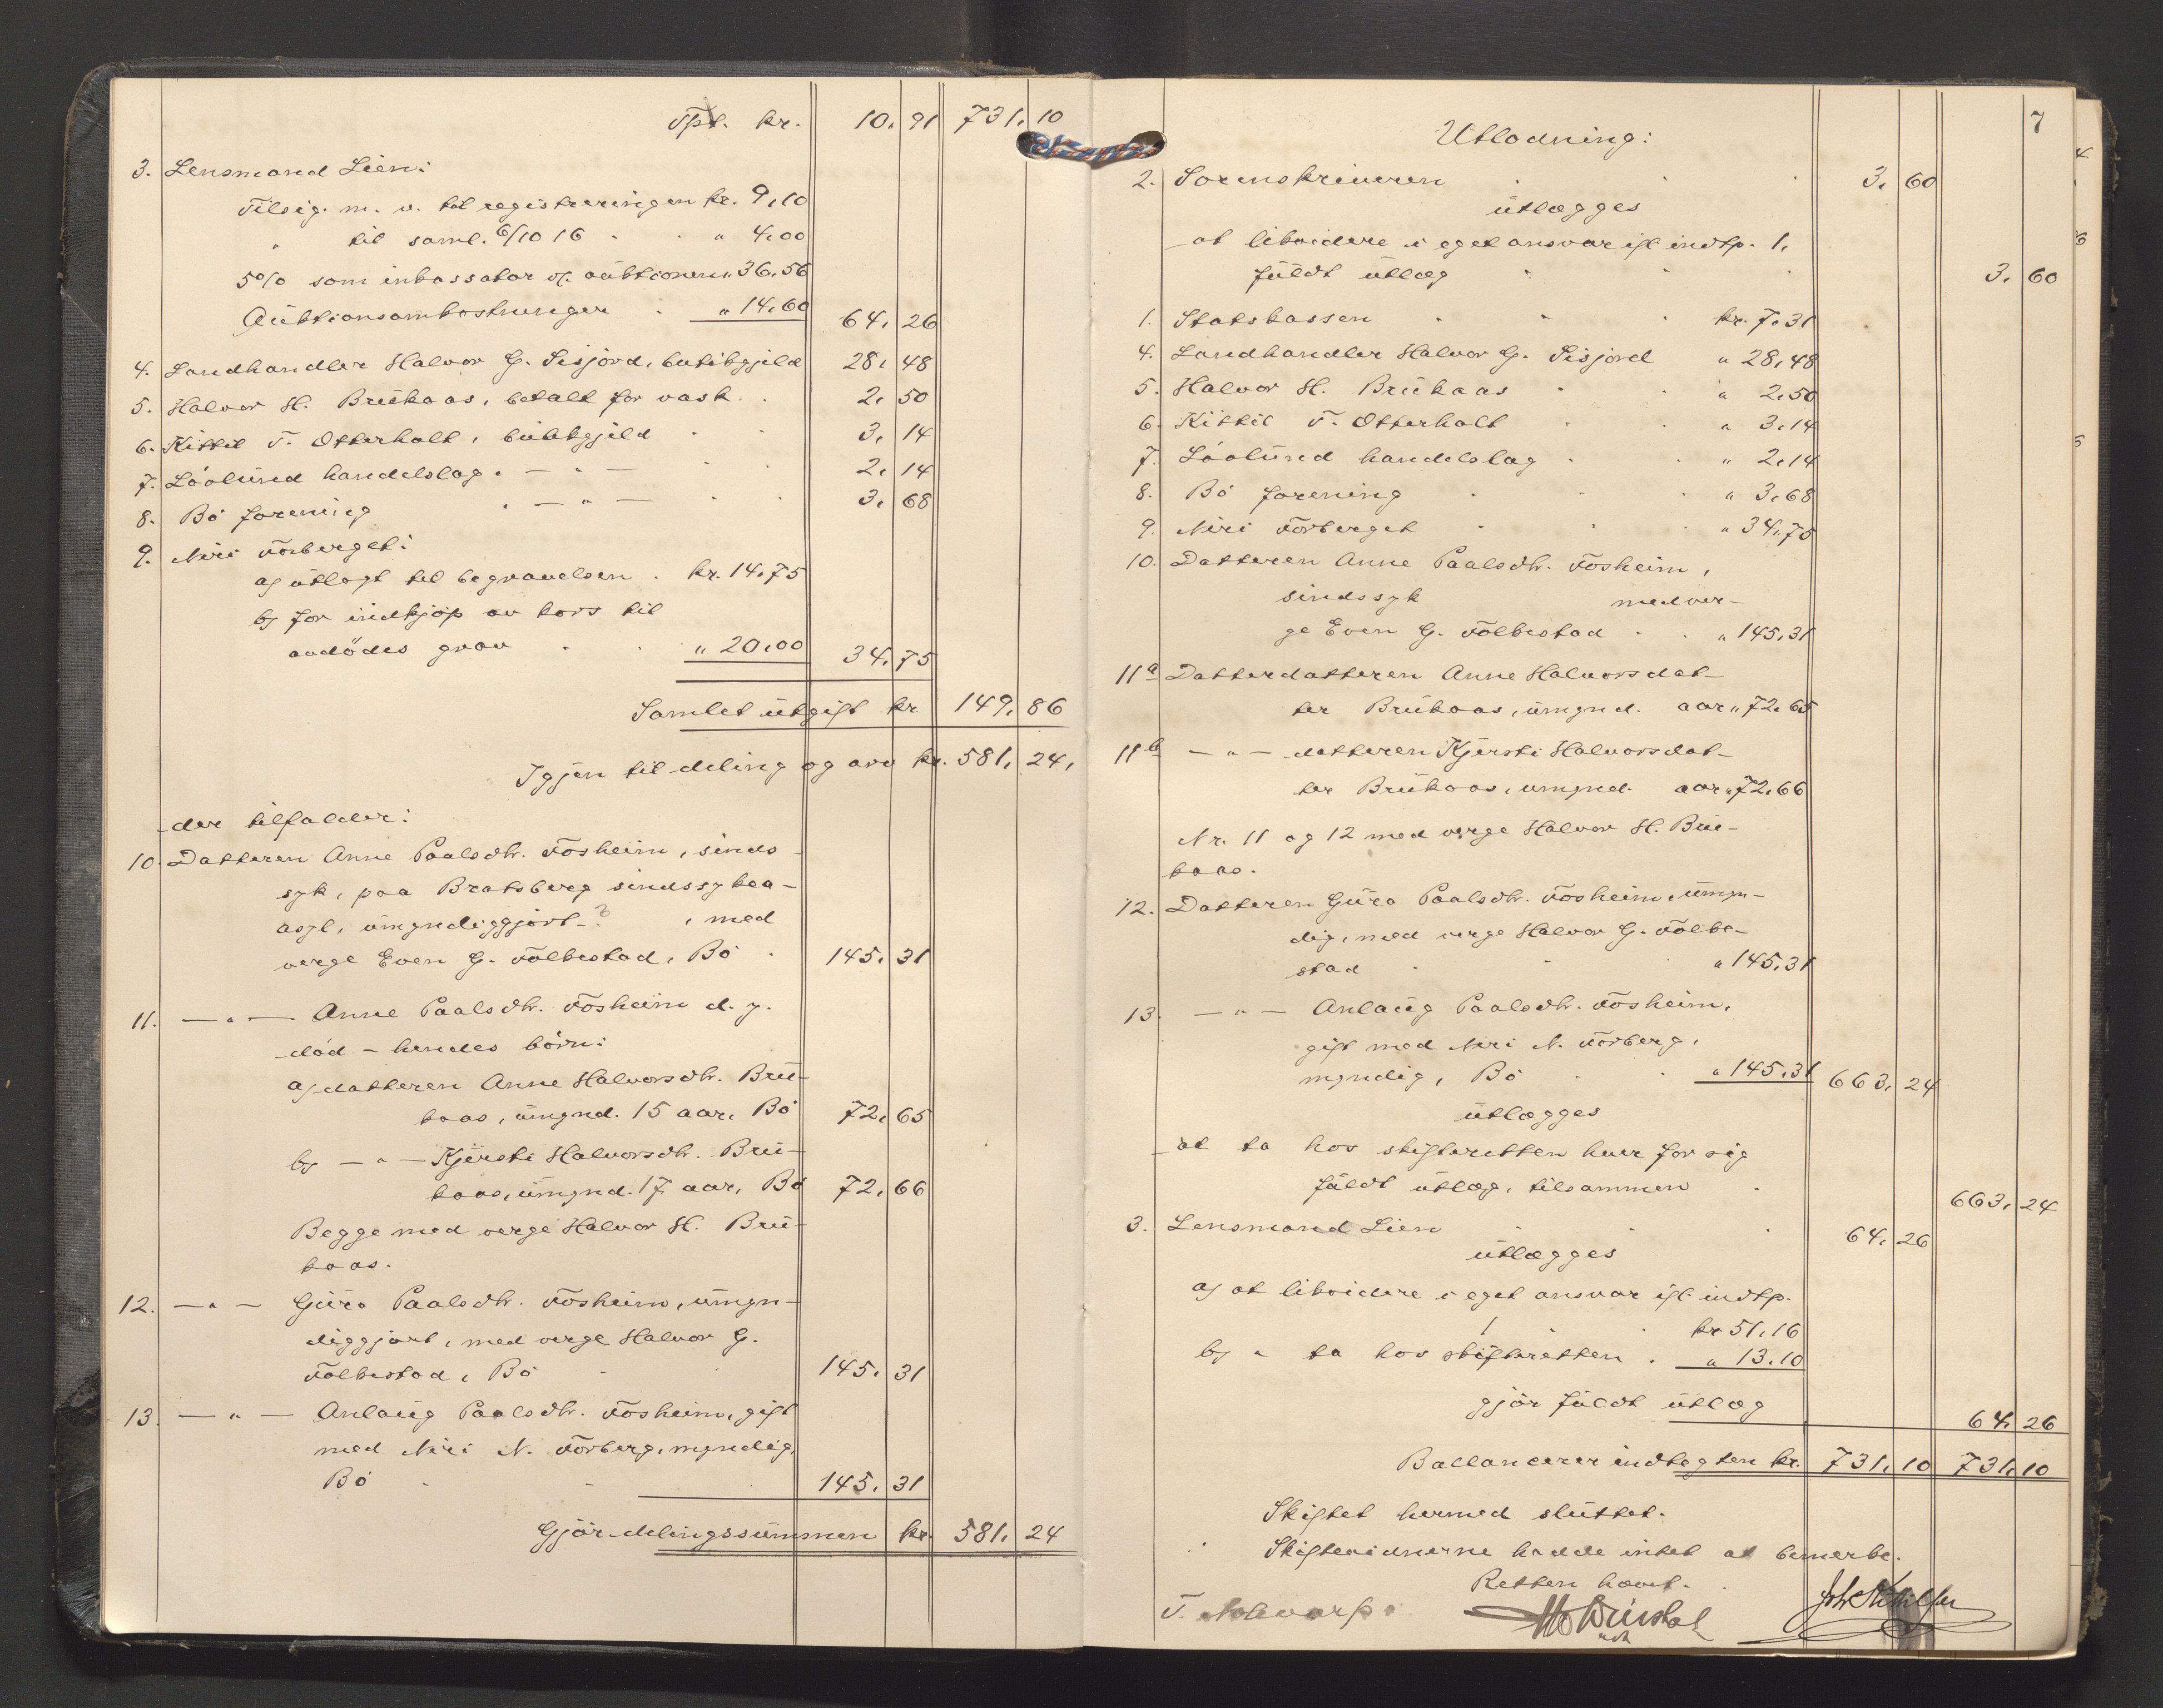 Tpt. kr. 10,91 731,10
3. Lensmand Lien:
Tilsig. m. v. til registreringen kr. 9,10
" til saml. 6/10 16 . . " 4,00
5% som inkassator v/ auktionen " 36,56
Auktionsomkostninger . " 14,60 64,26
4. Landhandler Halvor G. Sisjord, butikgjeld 28,48
5. Halvor H. Brukaas, betalt for vask . 2,50
6. Kittil T. Otterholt, butikgjeld . . 3,14
7. Lóolund handelslag. — " — . . 2,14
8. Bó forening . — " — . . 3,68
9. Niri Torberget:
a) utlagt til begravelsen . kr. 14,75
b) for indkjøp av kors til
avdödes grav . . " 20,00 34,75
Samlet utgift kr. 149,86
Igjen til deling og arv kr. 581,24,
der tilfalder:
10. Datteren Anne Paalsdtr. Fosheim, sinds-
syk, paa Bratsberg sindssykea-
asyl, umyndiggjort-? , med
verge Even G. Folkestad, Bó . 145,31
11. — " — Anne Paalsdtr. Fosheim d. y.
død – hendes börn:
a) datteren Anne Halvorsdtr. Bru-
kaas, umynd. 15 aar, Bó 72,65
b) — " — Kjersti Halvorsdtr. Bru-
kaas, umynd. 17 aar, Bó 72,66
Begge med verge Halvor H. Bru-
kaas.
12. — " — Guro Paalsdtr. Fosheim, umyn-
diggjort, med verge Halvor G.
Folkestad, Bó . 145,31
13. — " — Anlaug Paalsdtr. Fosheim, gift
med Niri N. Torberg, myndig,
Bó . . 145,31
Gjör delingssummen kr. 581,24
7
Utlodning:
2. Sorenskriveren . . . 3,60
utlægges
at likvidere i eget ansvar ifl. indtp. 1,
fuldt utlæg . . . 3,60
1. Statskassen . . . kr. 7,31
4. Landhandler Halvor G. Sisjord " 28,48
5. Halvor H. Brukaas . . " 2,50
6. Kittil T. Otterholt . . " 3,14
7. Lóolund handelslag . . " 2,14
8. Bó forening . . . " 3,68
9. Niri Torberget . . . " 34,75
10. Datteren Anne Paalsdtr. Fosheim,
sindssyk med ver-
ge Even G. Folkestad . . " 145,31
11a Datterdatteren Anne Halvorsdat-
ter Brukaas, umynd. aar " 72,65
11b — " — datteren Kjersti Halvorsdat-
ter Brukaas, umynd. aar " 72,66
Nr. 11 og 12 med verge Halvor H. Bru-
kaas.
12. Datteren Guro Paalsdtr. Fosheim, umyn-
dig, med verge Halvor G. Folke-
stad . . . " 145,31
13. — " — Anlaug Paalsdtr. Fosheim,
gift med Niri N. Torberg,
myndig, Bó . . " 145,31 663,24
utlægges
at ta hos skifteretten hver for sig
fuldt utlæg, tilsammen . 663,24
3. Lensmand Lien . . . 64,26
utlægges
a) at likvidere i eget ansvar ifl. indtp.
1 . kr. 51,16
b) " ta hos skifteretten . " 13,10
gjör fuldt utlæg 64,26
Ballancerer indtegten kr. 731,10 731,10
Skiftet hermed sluttet.
Skiftevidnerne hadde intet at bemerke.
Retten hævet.